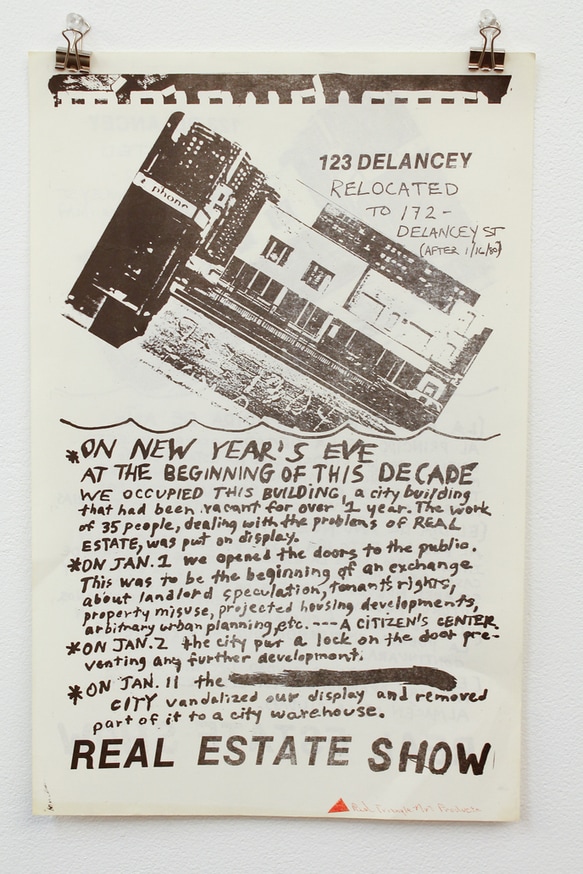 phone
123 DELANCEY
RELOCATED
TO 172-
DELANCEY ST
(AFTER 1/16/80)
*ON NEW YEAR'S EVE
AT THE BEGINNING OF THIS DECADE
WE OCCUPIED THIS BUILDING, a city building
that had been vacant for over 1 year. The work
of 35 people, dealing with the problems of REAL
ESTATE, was put on display.
*ON JAN. 1 we opened the doors to the public.
This was to be the beginning of an exchange
about landlord speculation, tenants rights,
property misuse, projected housing developments,
arbitrary urban planning, etc. --- A CITIZEN'S CENTER
*ON JAN. 2 the city put a lock on the door pre-
venting any further development.
*ON JAN. 11 the
CITY vandalized our display and removed
part of it to a city warehouse.
REAL ESTATE SHOW
Red